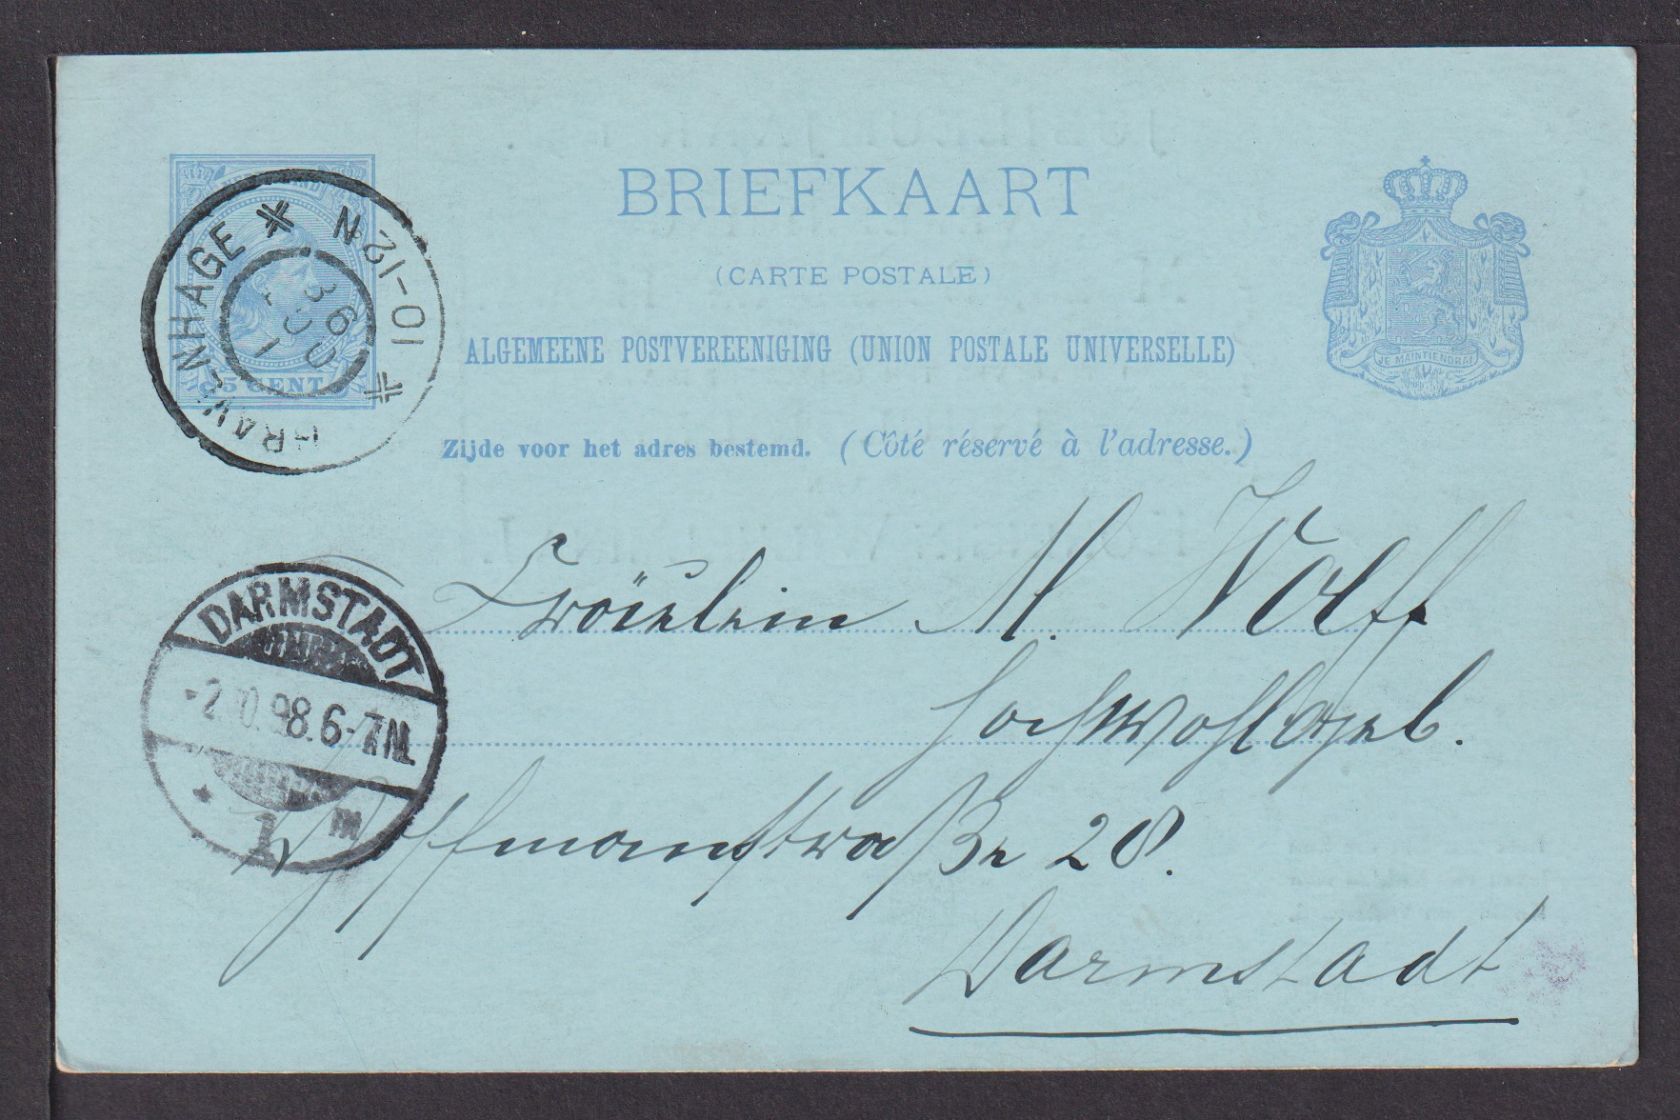 BRIEFKAART
(CARTE POSTALE)
ALGEMEENE POSTVEREENIGING (UNION POSTALE UNIVERSELLE)
JE MAINTIENDRAI
Zijde voor het adres bestemd. (Côté réservé à l'adresse.)
5 CENT
GRAVENHAGE
10-12N
DARMSTADT
-2.10.98.6-7N.
1
Fräulein M. Wolff
Hochwohlgeb.
Hoffmanstraße 28.
Darmstadt